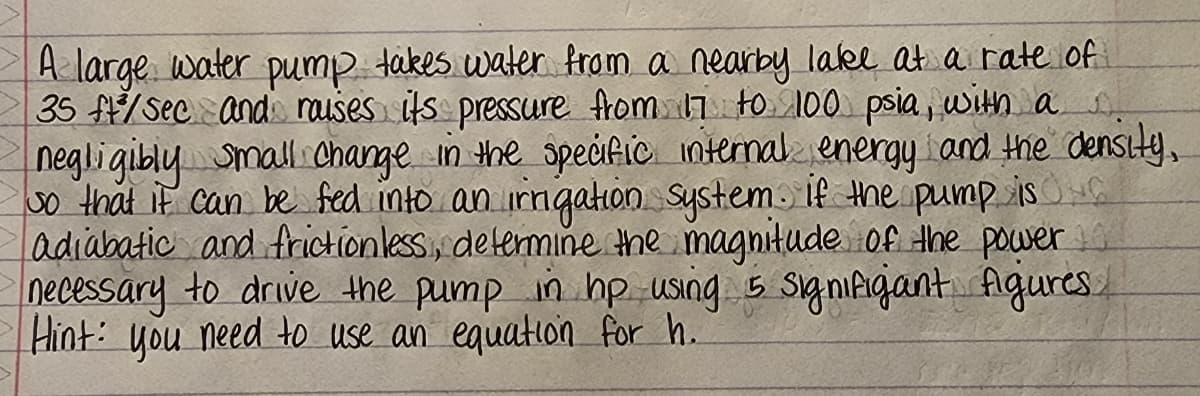 A large water pump takes water from a nearby lake at a rate of
35 ft³/sec and raises its pressure from 17 to 100 psia, with a
negligibly small change in the specific internal energy and the density,
so that it can be fed into an irrigation system. if the pump is
adiabatic and frictionless, determine the magnitude of the power
necessary to drive the pump in hp using 5 signifigant figures
Hint: you need to use an equation for h.